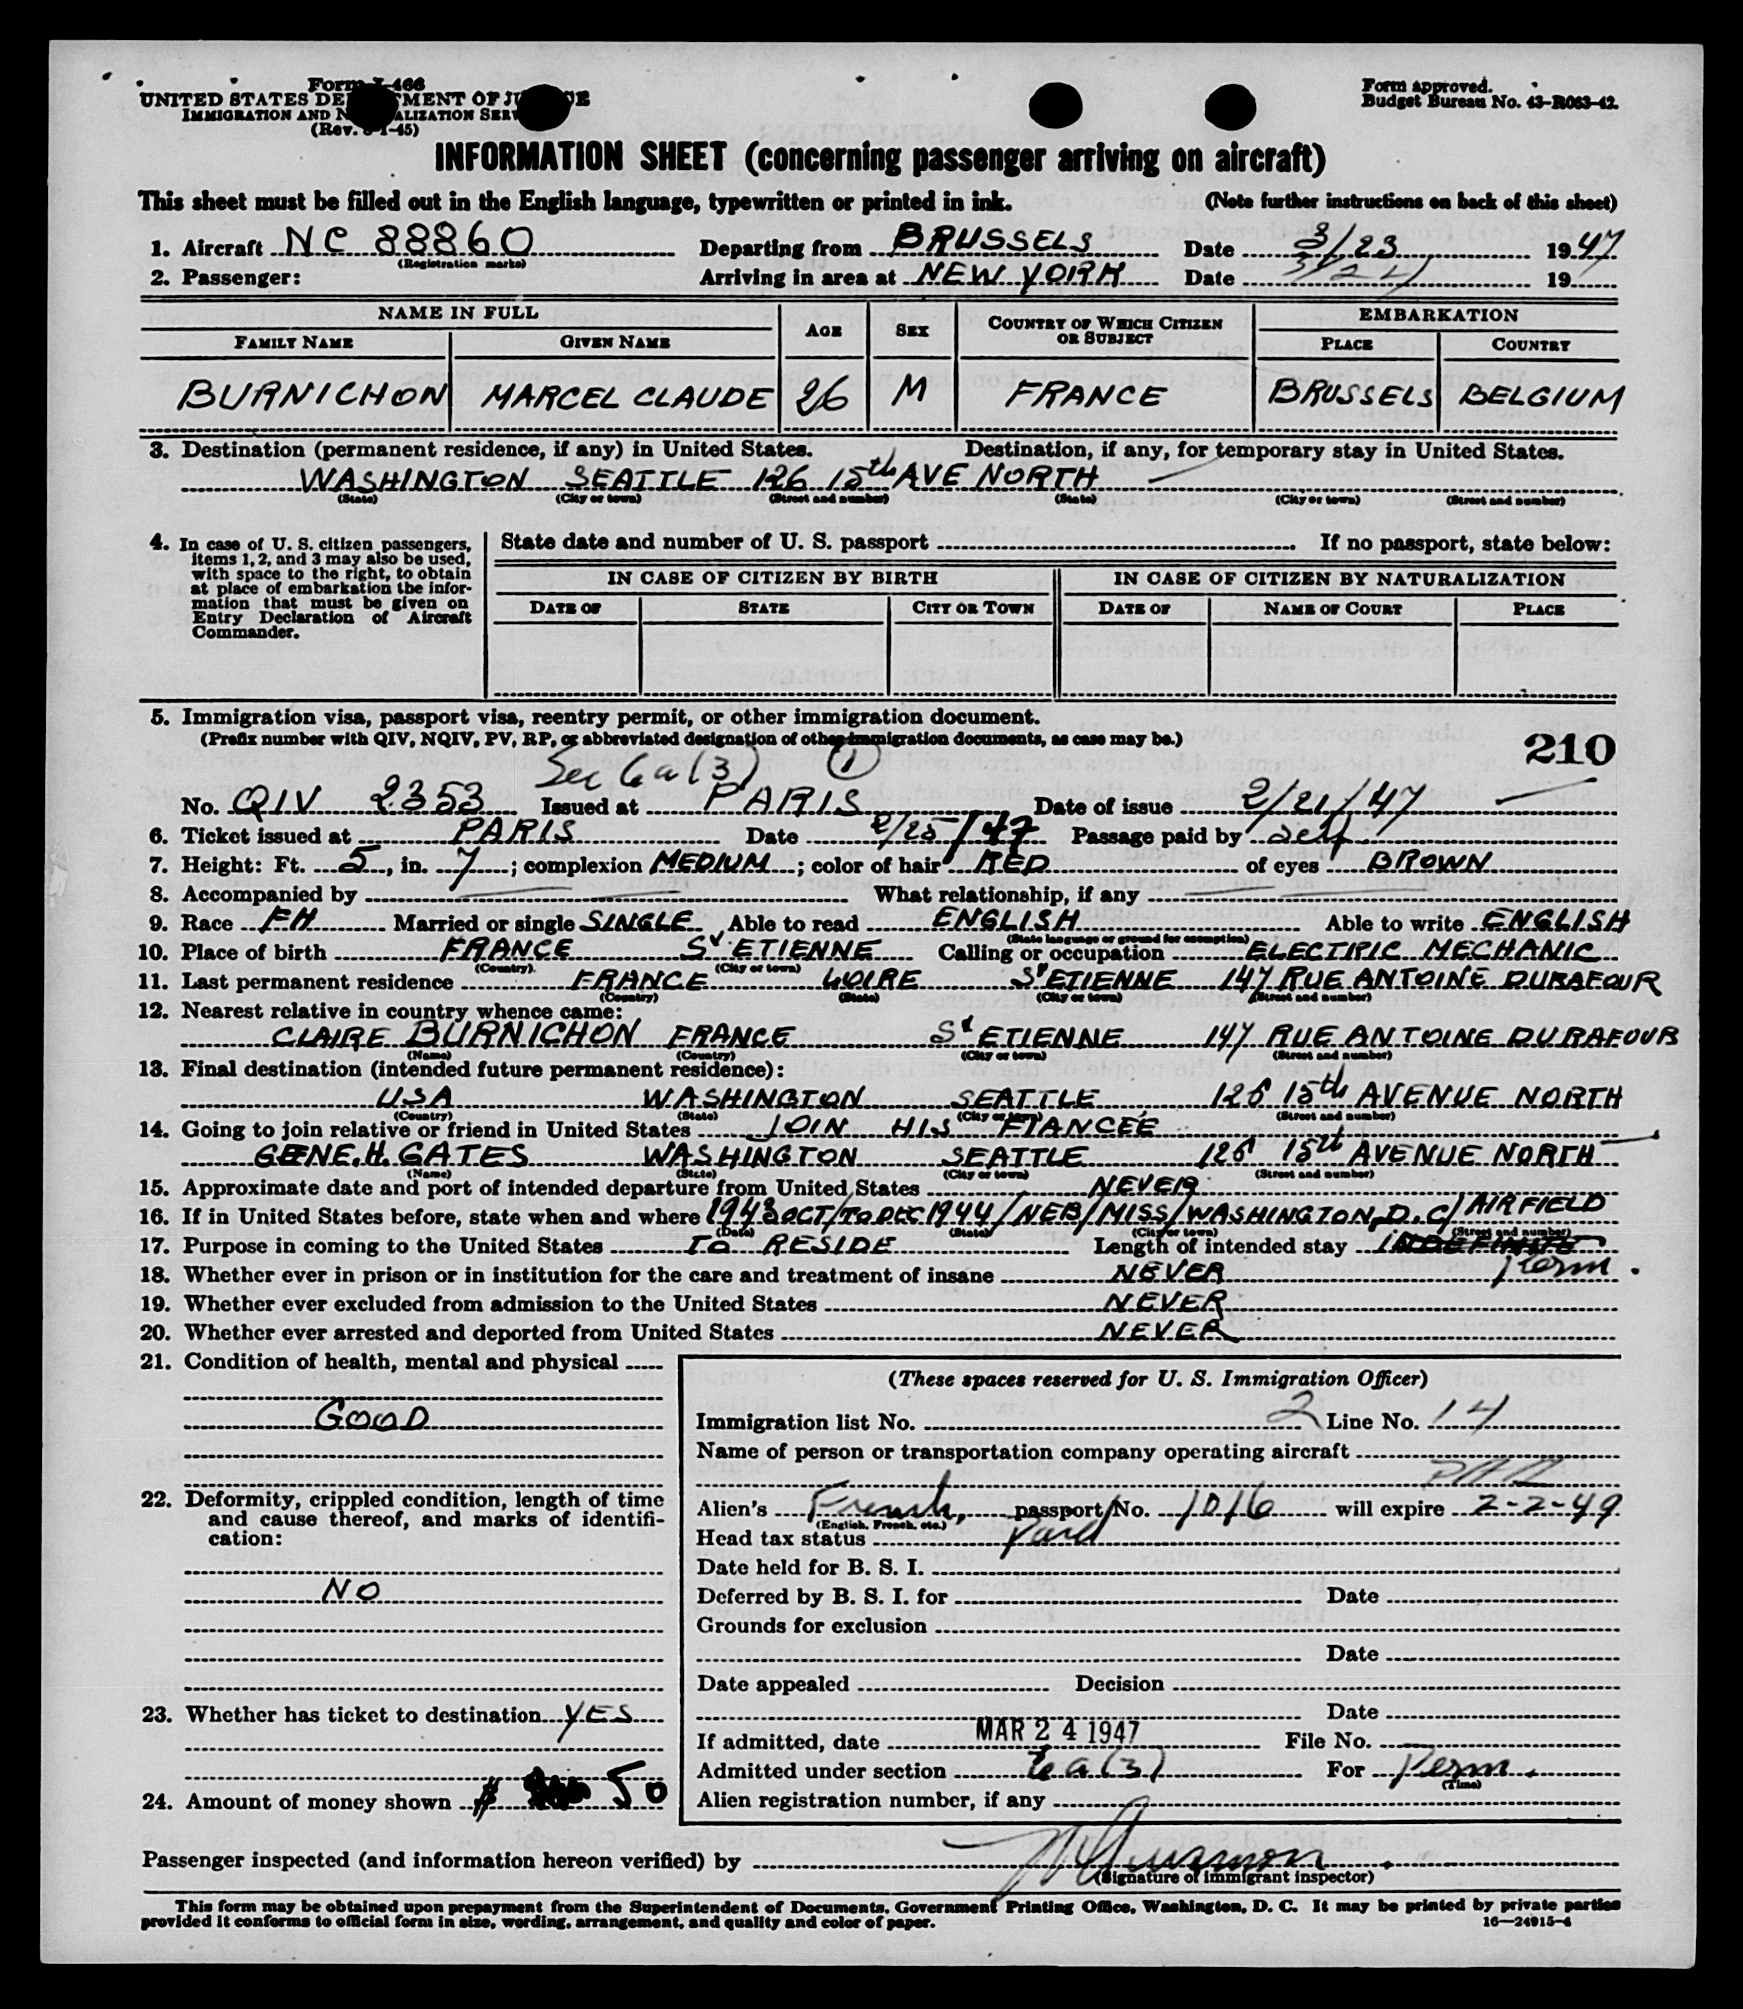 Form I-466
UNITED STATES DEPARTMENT OF JUSTICE
IMMIGRATION AND NATURALIZATION SERVICE
(Rev. -1-45)
Form approved.
Budget Bureau No. 43-R063-42.
INFORMATION SHEET (concerning passenger arriving on aircraft)
This sheet must be filled out in the English language, typewritten or printed in ink. (Note further instructions on back of this sheet)
1. Aircraft NC 88860 Departing from BRUSSELS Date 3/23 1947
(Registration marks)
2. Passenger: Arriving in area at NEW YORK Date 3/24 19
NAME IN FULL AGE SEX COUNTRY OF WHICH CITIZEN OR SUBJECT EMBARKATION
FAMILY NAME GIVEN NAME PLACE COUNTRY
BURNICHON MARCEL CLAUDE 26 M FRANCE BRUSSELS BELGIUM
3. Destination (permanent residence, if any) in United States. Destination, if any, for temporary stay in United States.
WASHINGTON SEATTLE 126 15th AVE NORTH —
(State) (City or town) (Street and number) (State) (City or town) (Street and number)
4. In case of U. S. citizen passengers, items 1, 2, and 3 may also be used, with space to the right, to obtain at place of embarkation the information that must be given on Entry Declaration of Aircraft Commander.
State date and number of U. S. passport If no passport, state below:
IN CASE OF CITIZEN BY BIRTH IN CASE OF CITIZEN BY NATURALIZATION
DATE OF STATE CITY OR TOWN DATE OF NAME OF COURT PLACE
5. Immigration visa, passport visa, reentry permit, or other immigration document.
(Prefix number with QIV, NQIV, PV, RP, or abbreviated designation of other immigration documents, as case may be.)
210
Sec 6a(3) 1
No. QIV 2353 Issued at PARIS Date of issue 2/21/47
6. Ticket issued at PARIS Date 2/25/47 Passage paid by Self
7. Height: Ft. 5, in. 7; complexion MEDIUM; color of hair RED of eyes BROWN
8. Accompanied by What relationship, if any
9. Race FH Married or single SINGLE Able to read ENGLISH Able to write ENGLISH
(State language or ground for exemption)
10. Place of birth FRANCE St ETIENNE Calling or occupation ELECTRIC MECHANIC
(Country) (City or town)
11. Last permanent residence FRANCE LOIRE St ETIENNE 147 RUE ANTOINE DURAFOUR
(Country) (State) (City or town) (Street and number)
12. Nearest relative in country whence came:
CLAIRE BURNICHON FRANCE St ETIENNE 147 RUE ANTOINE DURAFOUR
(Name) (Country) (City or town) (Street and number)
13. Final destination (intended future permanent residence):
USA WASHINGTON SEATTLE 126 15th AVENUE NORTH
(Country) (State) (City or town) (Street and number)
14. Going to join relative or friend in United States JOIN HIS FIANCEE
GENE.H.GATES WASHINGTON SEATTLE 126 15th AVENUE NORTH
(Name) (State) (City or town) (Street and number)
15. Approximate date and port of intended departure from United States NEVER
16. If in United States before, state when and where 1943 OCT/TO DEC 1944/NEB/MISS/WASHINGTON, D.C/AIRFIELD
(Date) (State) (City or town) (Street and number)
17. Purpose in coming to the United States TO RESIDE Length of intended stay INDEFINITE
Perm.
18. Whether ever in prison or in institution for the care and treatment of insane NEVER
19. Whether ever excluded from admission to the United States NEVER
20. Whether ever arrested and deported from United States NEVER
21. Condition of health, mental and physical
GOOD
22. Deformity, crippled condition, length of time and cause thereof, and marks of identification:
NO
23. Whether has ticket to destination YES
24. Amount of money shown $ 50
(These spaces reserved for U. S. Immigration Officer)
Immigration list No. 2 Line No. 14
Name of person or transportation company operating aircraft
PAA
Alien's French, passport No. 1016 will expire 2-2-49
(English, French, etc.)
Head tax status Paid
Date held for B. S. I.
Deferred by B. S. I. for Date
Grounds for exclusion
Date
Date appealed Decision
Date
If admitted, date MAR 24 1947 File No.
Admitted under section 6a(3) For Perm.
(Time)
Alien registration number, if any
Passenger inspected (and information hereon verified) by
(Signature of immigrant inspector)
This form may be obtained upon prepayment from the Superintendent of Documents, Government Printing Office, Washington, D. C. It may be printed by private parties
provided it conforms to official form in size, wording, arrangement, and quality and color of paper. 16—24915-4